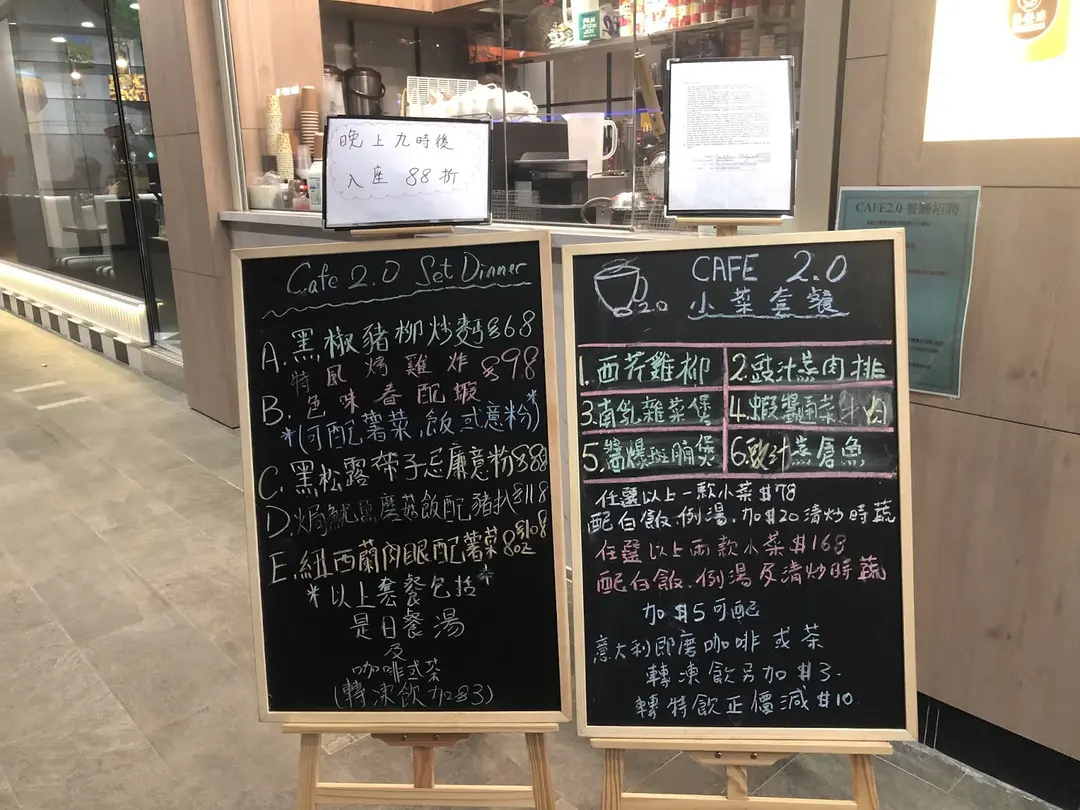 晚上九時後
入座 88 折
CAFE2.0 餐廳招聘
Cafe 2.0 Set Dinner
A. 黑椒豬柳炒麵 $68
B. 特 風 燒 雞 炸 $98
色 味 春 配 蝦
*(可配薯菜.飯或意粉)*
C. 黑松露帶子忌廉意粉 $88
D. 焗魷魚磨菇飯配豬扒 $118
E. 紐西蘭肉眼配薯菜 $108
8oz
*以上套餐包括*
是日餐湯
及
咖啡或茶
(轉凍飲加$3)
CAFE 2.0
2.0 小菜套餐
1. 西芹雞柳 2. 豉汁蒸肉排
3. 南乳雜菜煲 4. 蝦醬通菜牛肉
5. 醬爆斑腩煲 6. 豉汁蒸倉魚
任選以上一款小菜 $78
配白飯.例湯.加$20清炒時蔬
任選以上兩款小菜 $168
配白飯.例湯及清炒時蔬
加 $5 可配
意大利即磨咖啡或茶
轉凍飲另加 $3.
轉特飲正價減 $10.